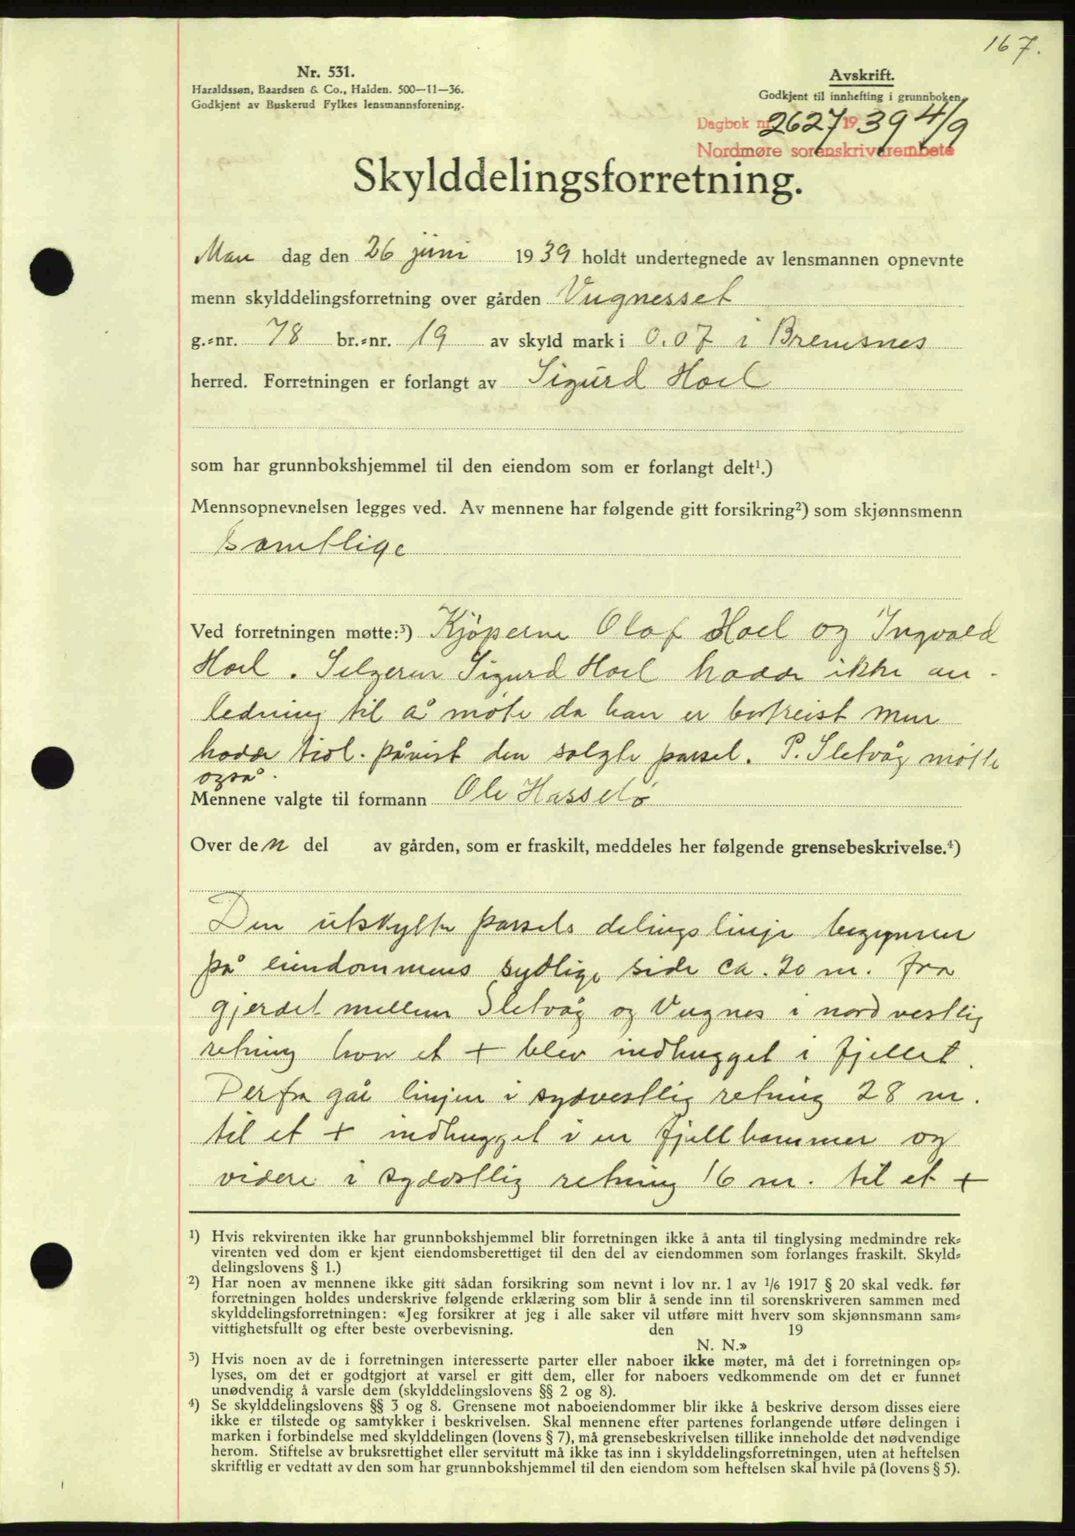 167.
Nr. 531.
Haraldssøn, Baardsen & Co., Halden. 500—11—36.
Godkjent av Buskerud Fylkes lensmannsforening.
Avskrift.
Godkjent til innhefting i grunnboken.
Dagbok nr. 2627 1939 4/9
Nordmøre sorenskriverembete
Skylddelingsforretning.
Man dag den 26 juni 1939 holdt undertegnede av lensmannen opnevnte
menn skylddelingsforretning over gården Vugnesset
g.-nr. 78 br.-nr. 19 av skyld mark i 0.07 i Bremsnes
herred. Forretningen er forlangt av Sigurd Hoel
som har grunnbokshjemmel til den eiendom som er forlangt delt¹.)
Mennsopnevnelsen legges ved. Av mennene har følgende gitt forsikring²) som skjønnsmenn
Samtlige
Ved forretningen møtte:³) Kjøperne Olaf Hoel og Ingvald
Hoel. Selgeren Sigurd Hoel hadde ikke an-
ledning til å møte da han er bortreist men
hadde tidl. påvist den solgte parsel. P. Sletvåg møtte
også.
Mennene valgte til formann Ole Hasselø
Over den del av gården, som er fraskilt, meddeles her følgende grensebeskrivelse.⁴)
Den utskylte parsels delingslinje begynner
på eiendommens sydlige side ca. 20 m. fra
gjerdet mellem Sletvåg og Vugnes i nordvestlig
retning hvor et + blev indhugget i fjellet.
Derfra går linjen i sydvestlig retning 28 m.
til et + indhugget i en fjellhammer og
videre i sydøstlig retning 16 m. til et +
¹) Hvis rekvirenten ikke har grunnbokshjemmel blir forretningen ikke å anta til tinglysing medmindre rek-
virenten ved dom er kjent eiendomsberettiget til den del av eiendommen som forlanges fraskilt. Skyld-
delingslovens § 1.)
²) Har noen av mennene ikke gitt sådan forsikring som nevnt i lov nr. 1 av 1/6 1917 § 20 skal vedk. før
forretningen holdes underskrive følgende erklæring som blir å sende inn til sorenskriveren sammen med
skylddelingsforretningen: «Jeg forsikrer at jeg i alle saker vil utføre mitt hverv som skjønnsmann sam-
vittighetsfullt og efter beste overbevisning. den 19
N. N.»
³) Hvis noen av de i forretningen interesserte parter eller naboer ikke møter, må det i forretningen op-
lyses, om det er godtgjort at varsel er gitt dem, eller for naboers vedkommende om det er funnet
unødvendig å varsle dem (skylddelingslovens §§ 2 og 8).
⁴) Se skylddelingslovens §§ 3 og 8. Grensene mot naboeiendommer blir ikke å beskrive dersom disses eiere
ikke er tilstede og samtykker i beskrivelsen. Skal mennene efter partenes forlangende utføre delingen i
marken i forbindelse med skylddelingen (lovens § 7), må grensebeskrivelsen tillike inneholde det nødvendige
herom. Stiftelse av bruksrettighet eller servitutt må ikke tas inn i skylddelingsforretningen, uten at heftelsen
skriftlig er vedtatt av den som har grunnbokshjemmel til den eiendom som heftelsen skal hvile på (lovens § 5).